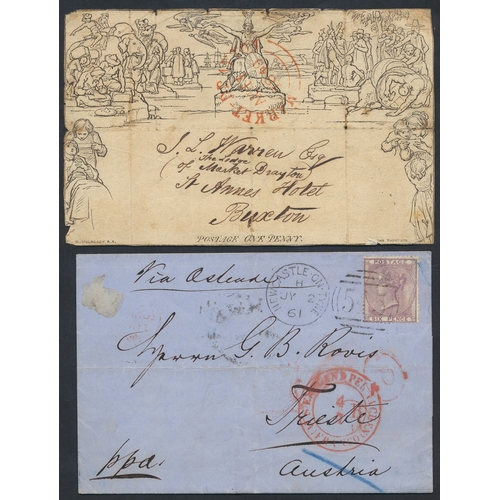 MARKET-DRAYTON
J. L. Warren Esq
The Lodge
(of Market Drayton
St Annes Hotel
Buxton
POSTAGE ONE PENNY.
W. MULREADY R.A.
Via Ostende
NEWCASTLE-ON-TYNE
H
JY 2
61
POSTAGE
SIX PENCE
Herrn G. B. Rovis
Trieste
ppa.
Austria